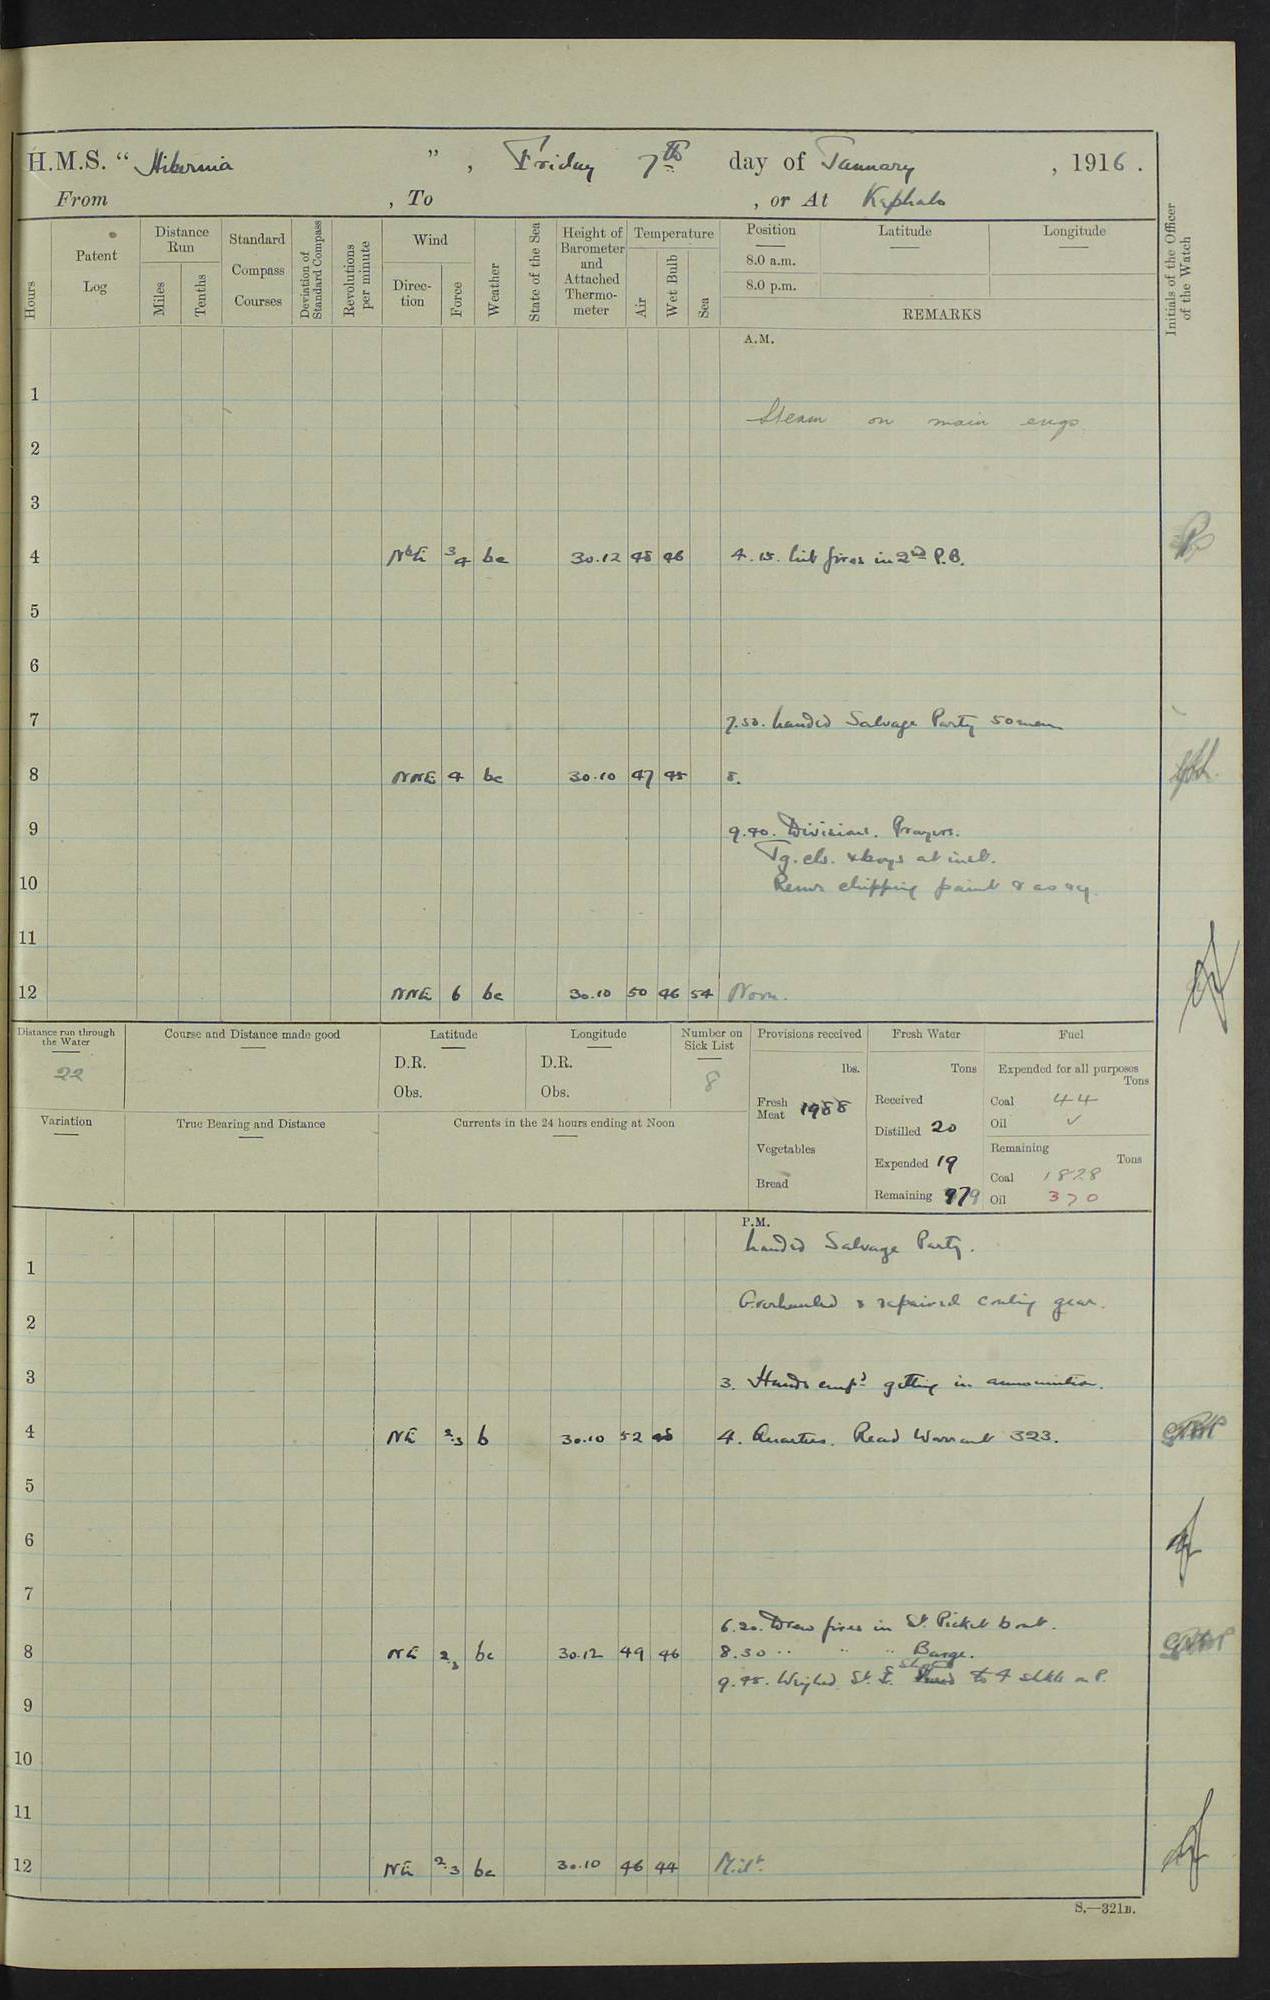 H.M.S. “ Hibernia ” , Friday 7th day of January , 1916 .
From , To , or At Kephalo
Hours
Patent Log
Distance Run
Miles
Tenths
Standard Compass Courses
Deviation of Standard Compass
Revolutions per minute
Wind
Direction
Force
Weather
State of the Sea
Height of Barometer and Attached Thermometer
Temperature
Air
Wet Bulb
Sea
Position
8.0 a.m.
8.0 p.m.
Latitude
Longitude
REMARKS
Initials of the Officer of the Watch
A.M.
1
Steam on main engs
2
3
4 NbE 3/4 bc 30.12 48 46 4.15. Lit fires in 2nd P.B.
5
6
7
7.50. Landed Salvage Party 50 men
8 NNE 4 bc 30.10 47 45 8.
9
9.40. Divisions. Prayers.
Tg. cls. & boys at inst.
10
chipping paint
11
12 NNE 6 bc 30.10 50 46 54 Noon.
Distance run through the Water
22
Course and Distance made good
Latitude
D.R.
Obs.
Longitude
D.R.
Obs.
Number on Sick List
8
Provisions received
lbs.
Fresh Meat 1988
Vegetables
Bread
Fresh Water
Tons
Received
Distilled 20
Expended 19
Remaining 979
Fuel
Expended for all purposes
Tons
Coal 44
Oil ✓
Remaining
Tons
Coal 1828
Oil 370
Variation
True Bearing and Distance
Currents in the 24 hours ending at Noon
P.M.
Landed Salvage Party.
1
Overhauled & repaired coaling gear.
2
3
3. Hands empd getting in ammunition.
4 NE 2.3 b 30.10 52 48 4. Quarters. Read Warrant 323.
5
6
7
6.20. Drew fires in St. Picket boat.
8 NE 2.3 bc 30.12 49 46 8.30 " " " Barge.
9.45. Weighed St. S. to 4 shkls on P.
9
10
11
12 NE 2.3 bc 30.10 46 44 Midt.
S.—321B.